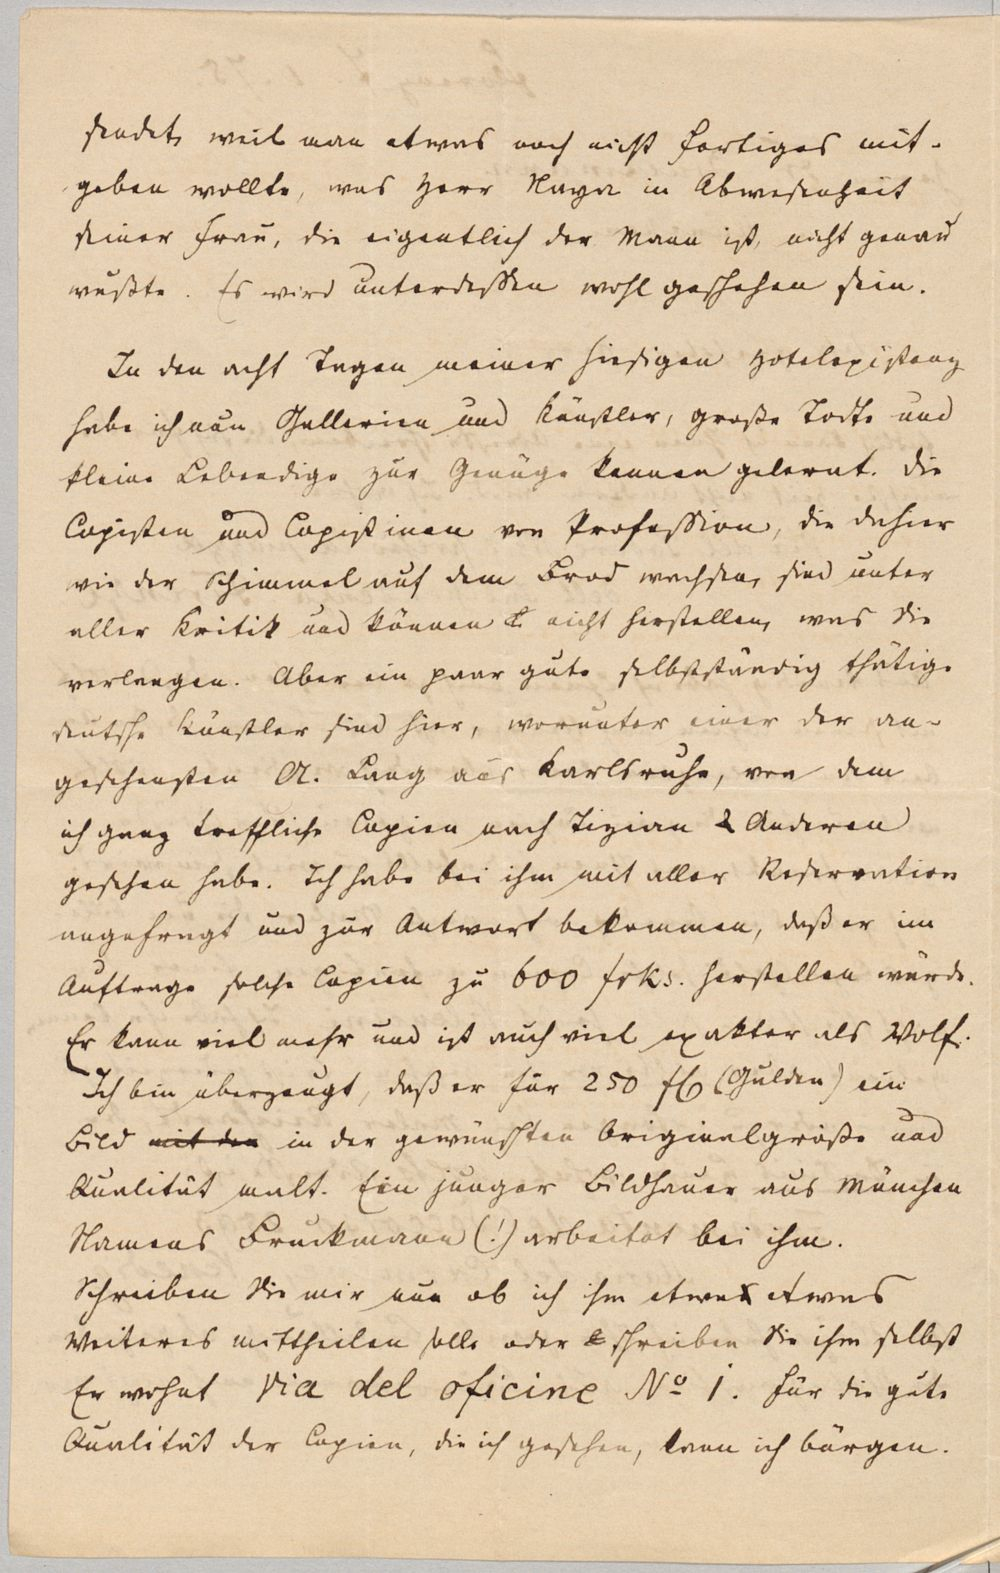 sendet, weil man etwas noch nicht fertiges mit-
geben wollte, was Herr Naya in Abwesenheit
seiner Frau, die eigentlich der Mann ist, nicht genau
wußte. Es wird unterdessen wohl geschehen sein.
In den acht Tagen meiner hiesigen Hotelexistenz
habe ich nun Gallerien und Künstler, große Todte und
kleine Lebendige zur Genüge kennen gelernt. Die
Copisten und Copistinen von Profession, die dahier
wie der Schimmel auf dem Brod wachsen, sind unter
aller Kritik und können nicht herstellen, was Sie
verlangen. Aber ein paar gute selbstständig thätige
deutsche Künstler sind hier, worunter einer der an-
gesehensten A. Lang aus Karlsruhe, von dem
ich ganz treffliche Copien nach Tizian & Anderen
gesehen habe. Ich habe bei ihm mit aller Reservation
angefragt und zur Antwort bekommen, daß er im
Auftrage solche Copien zu 600 frks. herstellen würde.
Er kann viel mehr und ist auch viel exakter als Wolf.
Ich bin überzeugt, daß er für 250 fl (Gulden) ein
Bild mit den in der gewünschten Originalgröße und
Qualität malt. Ein junger Bildhauer aus München
Namens Bruckmann (!) arbeitet bei ihm.
Schreiben Sie mir nun ob ich ihm etwa etwas
Weiteres mittheilen solle oder schreiben Sie ihm selbst
Er wohnt Via del oficine No 1. Für die gute
Qualität der Copien, die ich gesehen, kann ich bürgen.